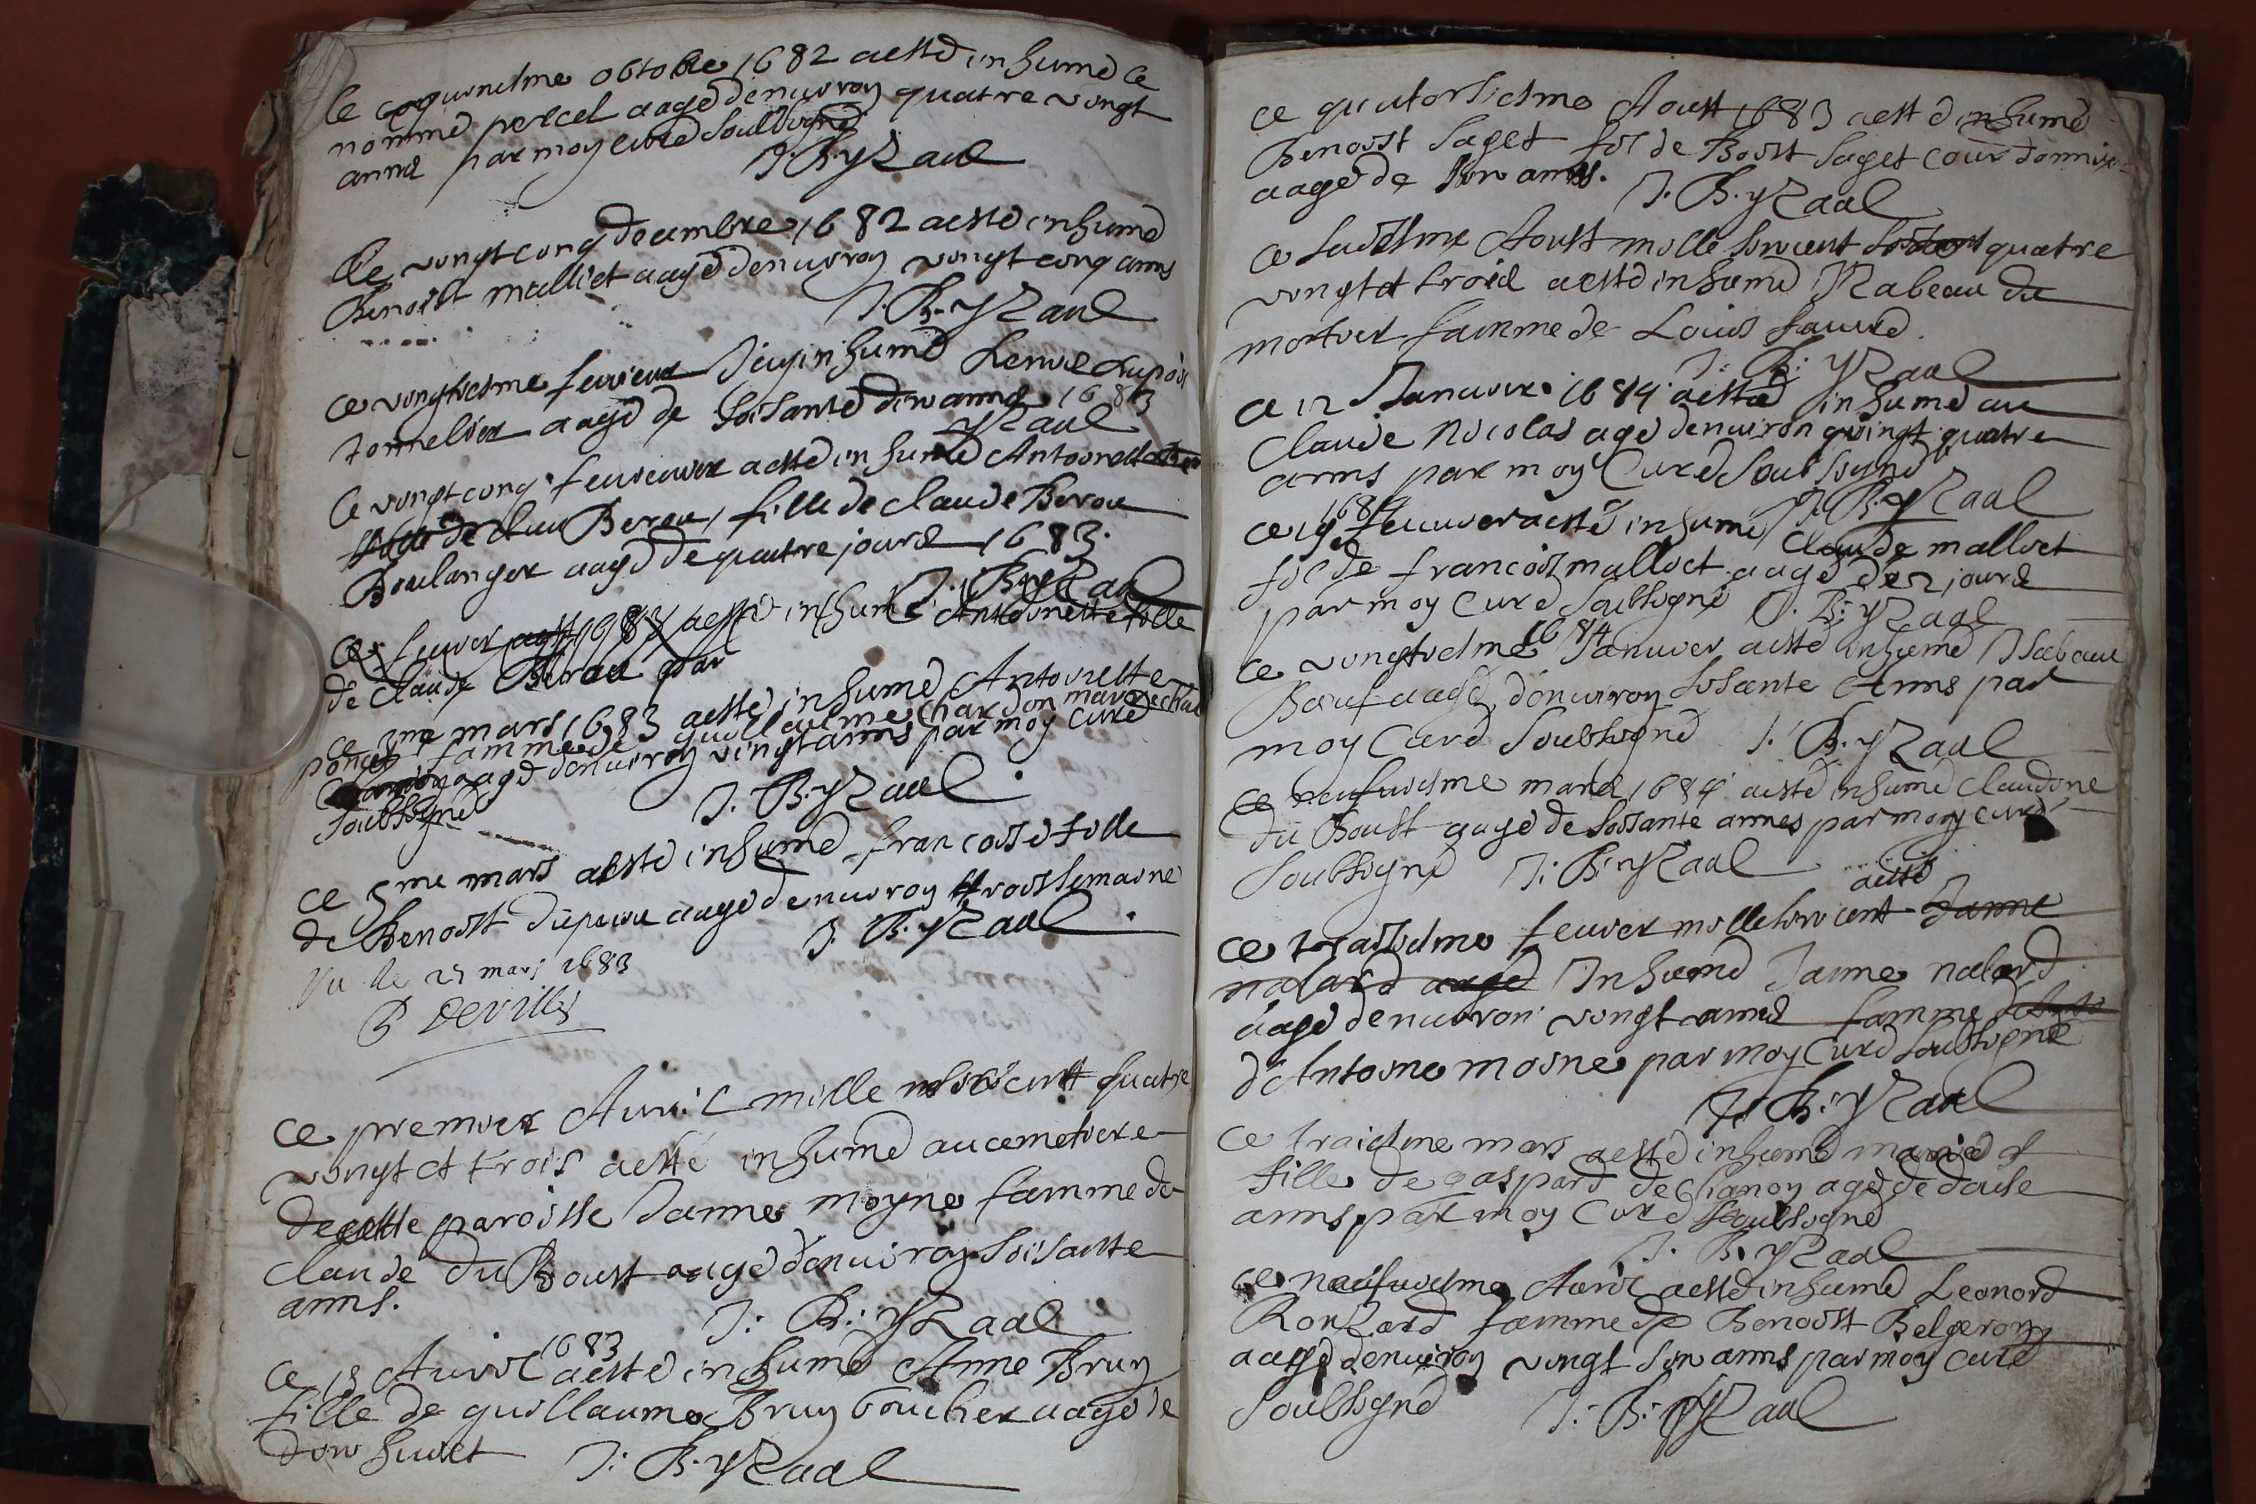 octobre 1682 aesté inhumé ce
nommé percel aagé denuiron quatre vingt
anns par moy curé soubsigné
J. B. yzaac
le vingt cinq decembre 1682 aesté inhumé
Benoist malliet aagé denuiron vingt cinq anns
J. B. yzaac
ce vingtiesme feurier Jay inhumé
tonnelier aagé de soisante dix anns 1683
yzaac
le vingt cinq feurier aesté inhumé Antoinette
Berou, fille de claude Berou
Boulanger aagé de quatre jours 1683.
J. B. yzaac
ce feurier 1683 aesté inhumé Antoinette fille
de claude Berou par
ce 2me mars 1683 aesté inhumé Antoinette
poncet famme de guillaume chardon marechal
aagé denuiron vingt anns par moy curé
soubsigné
J. B. yzaac
ce 5me mars aesté inhumé francoise fille
de Benoist aagé denuiron trois semaine
J. B. yzaac
Vu le 27 mars 1683
Deville
ce premier Auril mille sixcent quatre
vingt et trois aesté inhumé au cemetiere
de cette paroisse Janne moyne famme de
claude du Boust aagé denuiron soisante
anns.
J: B: yzaac
ce 18 Auril 1683 aesté inhumé Anne Brun
fille de guillaume Brun boucher aagé de
dix huict
J: B. yzaac
ce quatorsiesme Aoust 1683 aesté inhumé
Benoist saget fils de Boist saget
aagé de six anns.
J. B. yzaac
ce Aoust mille sixcent quatre
vingt et trois aesté inhumé yzabeau du
mortier famme de Louis faure.
J: B: yzaac
ce 12 Januier 1684 aesté inhumé
claude Nicolas agé denuiron quatre
anns par moy Curé soubsigné
J. B. yzaac
ce 19 feuurier 1684 aesté inhumé Claude malliet
fils de francois malliet aagé de 2 jours
par moy Curé soubsigné J. B: yzaac
ce vingtiesme 1684 Januier aesté inhumé Isabeau
Bœuf aagé denuiron soisante Anns par
moy Curé soubsigné J. B. yzaac
ce neufuiesme mars 1684 aesté inhumé claudine
du Boust aagé de soisante annes par moy curé
soubsigné J: B: yzaac
aesté
ce feurier mille sixcent Janne
nalard aagé Inhumé Janne nalard
aagé denuiron vingt annes famme
d'Antoine moine par moy Curé soubsigné
J: B: yzaac
ce mars aesté inhumé marie
fille de gaspard de chanon agé de
anns par moy Curé soubsigné
J. B. yzaac
ce neufuiesme Auril aesté inhumé Leonord
Ronzard famme de Benoist Belgeron
aagé denuiron vingt six anns par moy curé
soubsigné J: B: yzaac